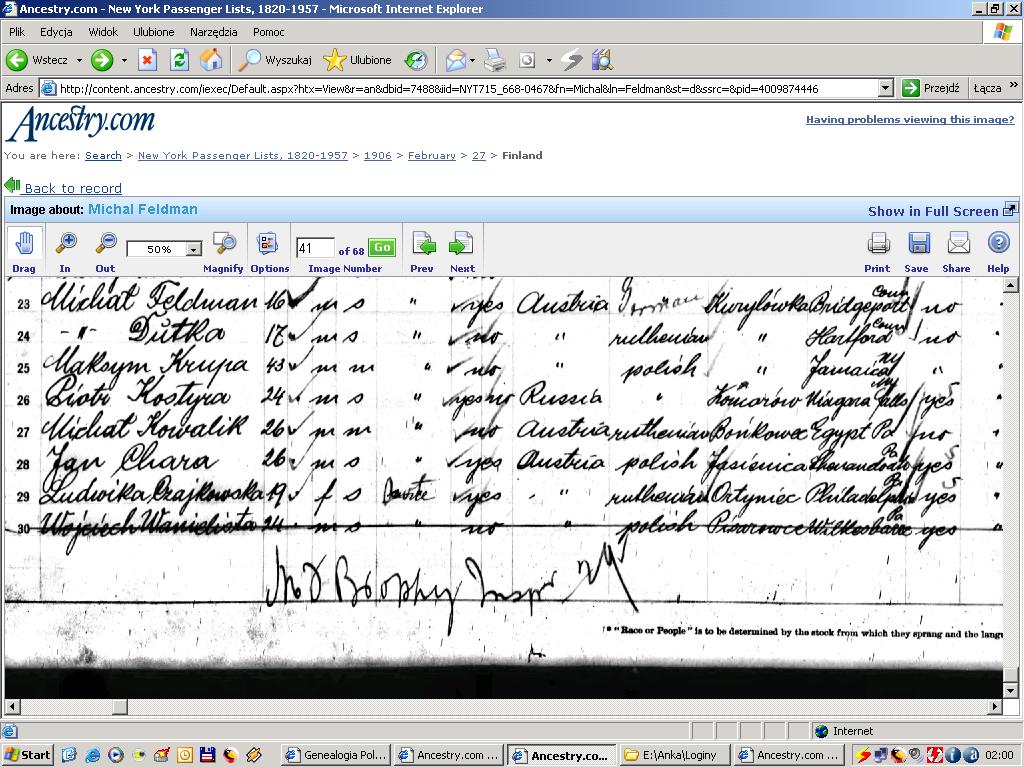 Ancestry.com - New York Passenger Lists, 1820-1957 - Microsoft Internet Explorer
Plik Edycja Widok Ulubione Narzędzia Pomoc
Wstecz Wyszukaj Ulubione
Adres http://content.ancestry.com/iexec/Default.aspx?htx=View&r=an&dbid=7488&iid=NYT715_668-0467&fn=Michal&ln=Feldman&st=d&ssrc=&pid=4009874446 Przejdź Łącza »
Ancestry.com
Having problems viewing this image?
You are here: Search > New York Passenger Lists, 1820-1957 > 1906 > February > 27 > Finland
Back to record
Image about: Michal Feldman Show in Full Screen
50% 41 of 68 Go
Drag In Out Magnify Options Image Number Prev Next Print Save Share Help
23 Michał Feldman 16 m s " yes Austria German Kuryłówka Bridgeport Conn no
24 -"- Dutka 17 m s " no " ruthenian " Hartford Conn no
25 Maksym Krupa 43 m m " no " polish " Jamaica NY "
26 Piotr Kostyra 24 m s " yes no Russia " Komarów Niagara Falls NY yes
27 Michał Kowalik 26 m m " no Austria ruthenian Bonkowce Egypt Pa no
28 Jan Chara 26 m s " yes Austria polish Jasienica Pa yes
29 Ludwika Czajkowska 19 f s yes " ruthenian Ortyniec Philadelphia Pa yes
30 Wojciech 24 m s no " polish Pisarowce Wilkesbarre Pa yes
Insp
* "Race or People" is to be determined by the stock from which they sprang and the lang
Internet
Start Genealogia Pol... Ancestry.com ... Ancestry.co... E:\Anka\Loginy Ancestry.com ... 02:00